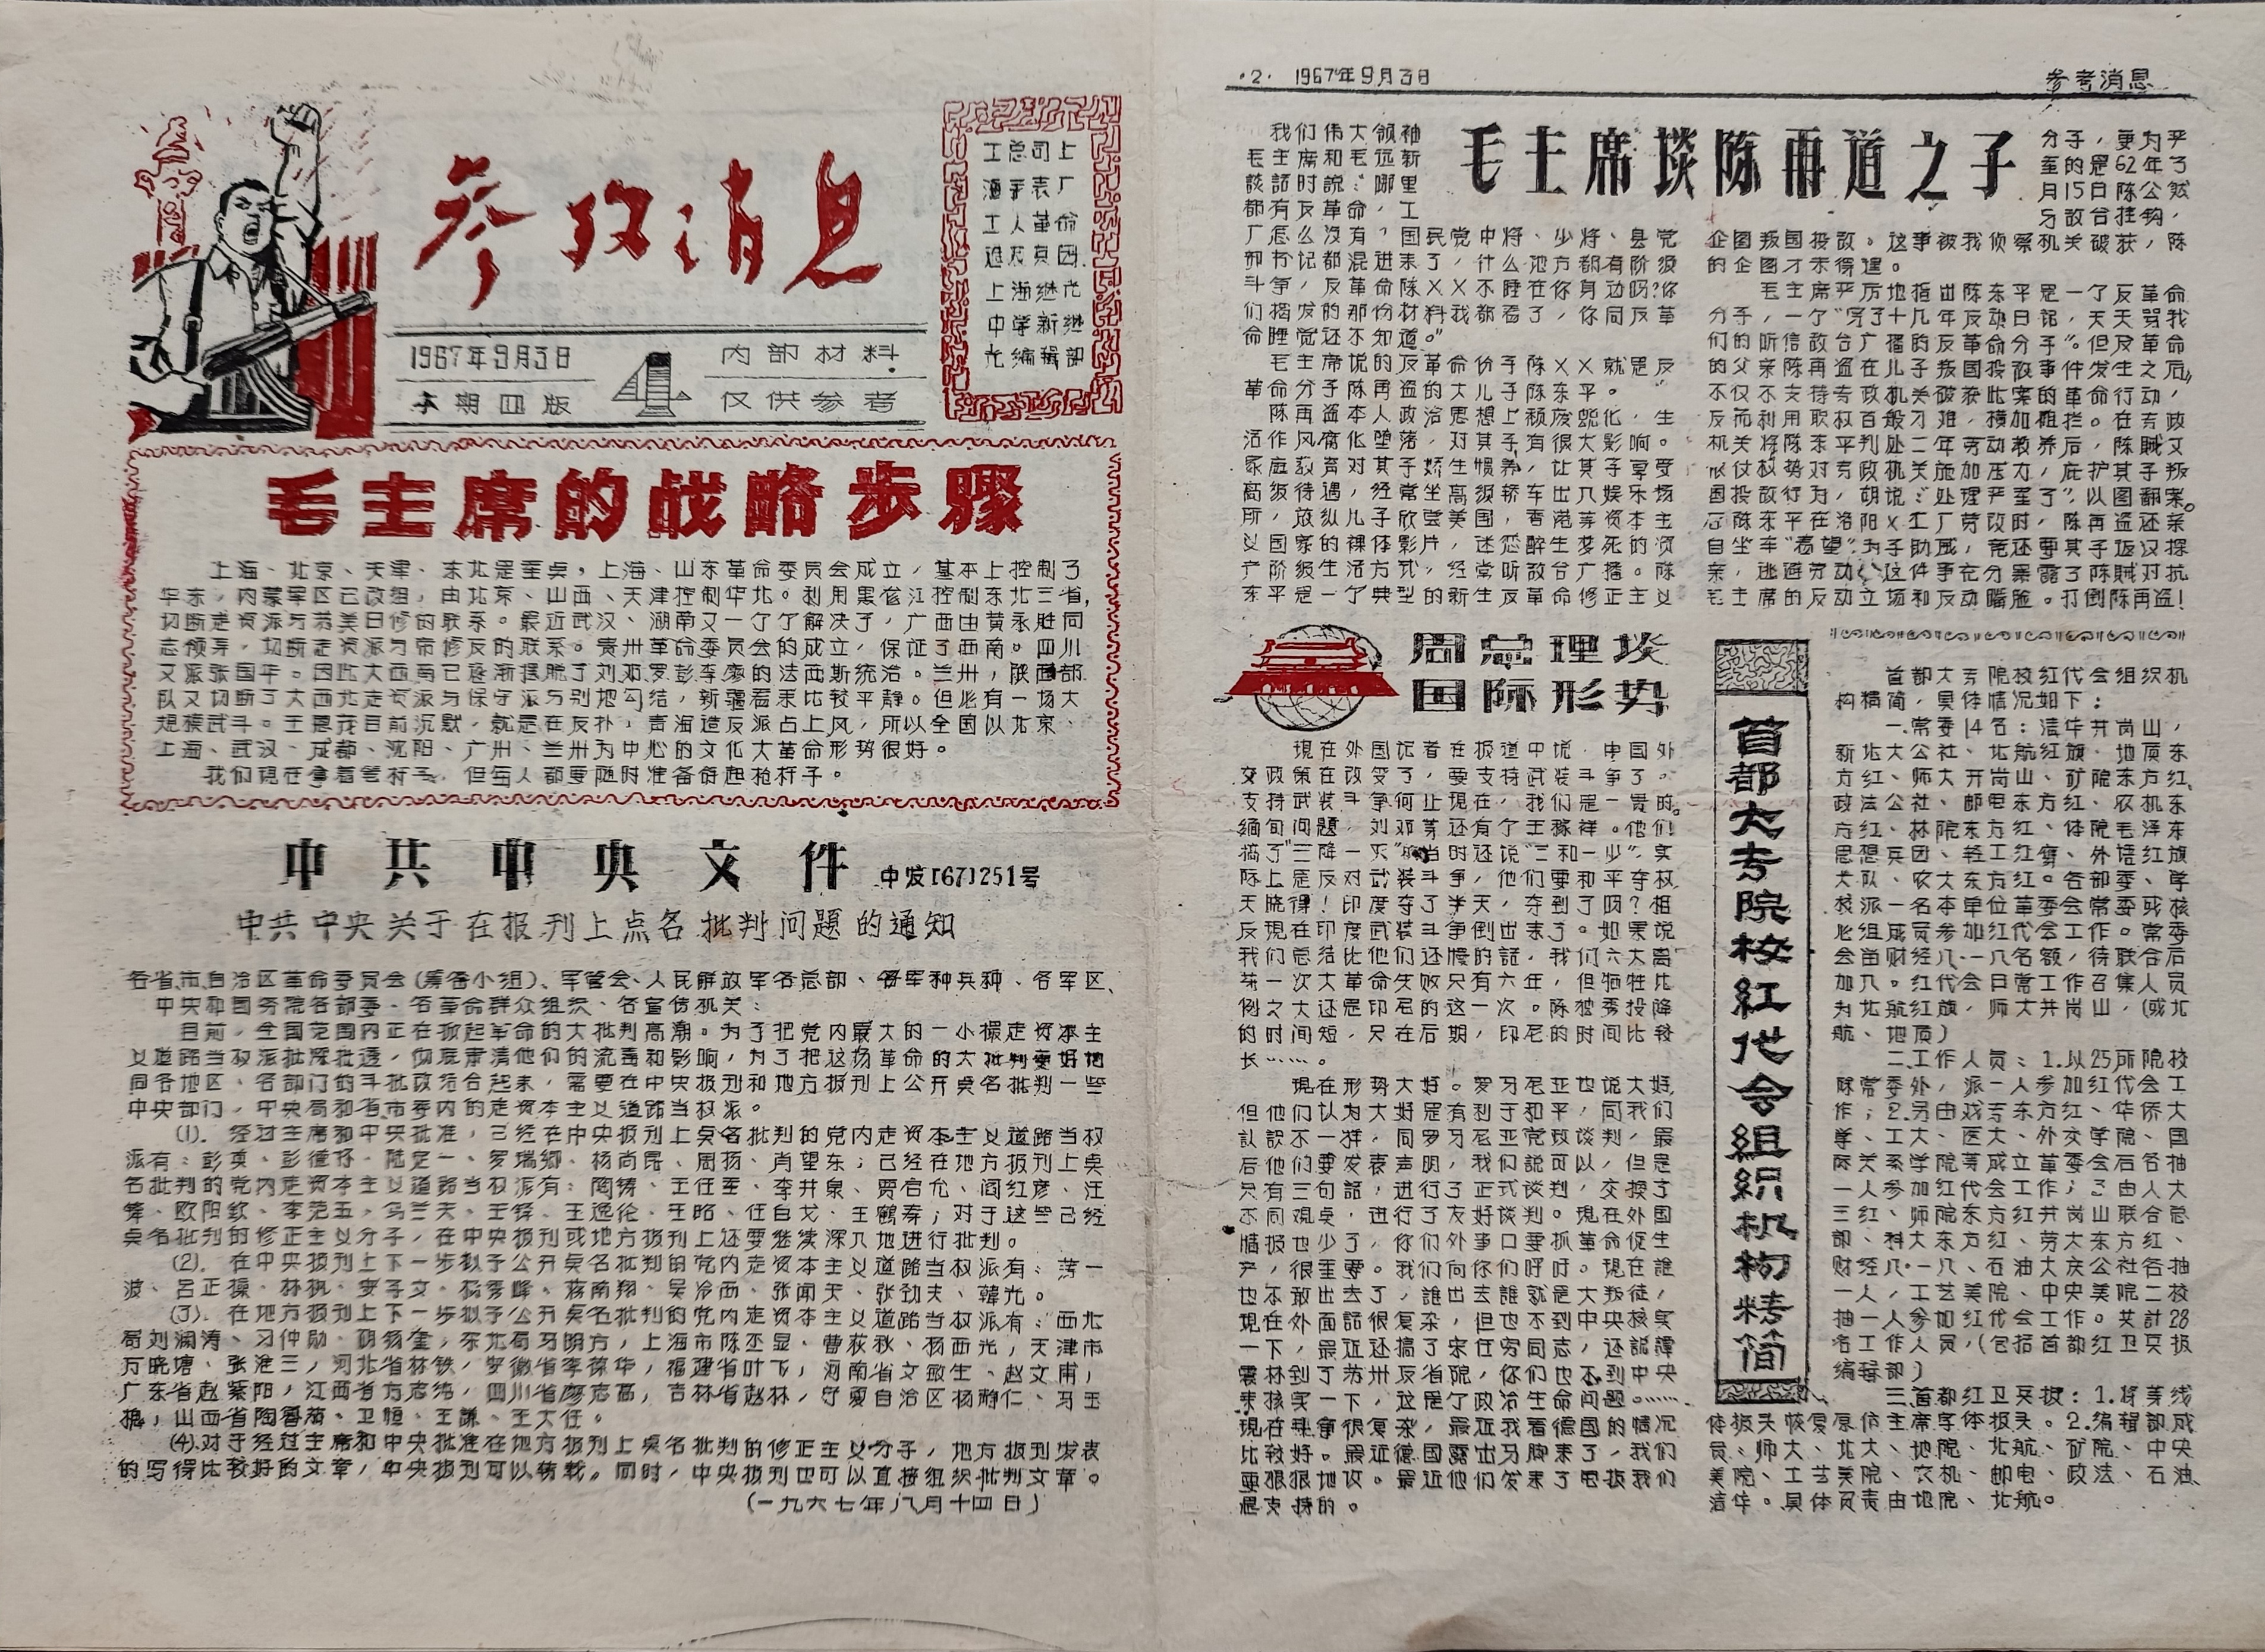 参攷消息
工总司上
海手表厂
工人革命
造反兵团
上海继光
中学新继
光编辑部
1967年9月3日
本期四版
内部材料
仅供参考
毛主席的战略步骤
上海、北京、天津、东北是重点，上海、山东革命委员会成立，基本上控制了
华东，内蒙军区已改组，由北京、山西、天津控制华北。利用黑龙江控制东北三省，
切断走资派与苏美日修的联系。最近武汉、湖南又一个了解决了，广西由黄永胜同
志领导，切断走资派与帝修反的联系。贵州革命委员会的成立，保证了西南。四川
又派张国华。因此大西南已逐渐摆脱了刘邓罗彭李廖的法西斯统治。兰州，陕西部
队又切断了大西北走资派与保守派与别地勾结，新疆看来比较平静。但必有一场大
规模武斗。王恩茂目前沉默，就是在反扑，青海造反派占上风，所以全国以北京、
上海、武汉、成都、沈阳、广州、兰州为中心的文化大革命形势很好。
我们现在拿着笔杆子，但每人都要随时准备背起枪杆子。
中共中央文件 中发[67]251号
中共中央关于在报刊上点名批判问题的通知
各省市自治区革命委员会(筹备小组)、军管会、人民解放军各总部、各军种兵种、各军区、
中央和国务院各部委、各革命群众组织、各宣传机关：
目前，全国范围内正在掀起革命的大批判高潮。为了把党内最大的一小撮走资本主
义道路当权派批深批透，彻底肃清他们的流毒和影响，为了把这场革命的大批判更好地
同各地区、各部门的斗批改结合起来，需要在中央报刊和地方报刊上公开点名批判一些
中央部门，中央局和省市委内的走资本主义道路当权派。
(1)．经过主席和中央批准，已经在中央报刊上点名批判的党内走资本主义道路当权
派有：彭真、彭德怀、陆定一、罗瑞卿、杨尚昆、周扬、肖望东；已经在地方报刊上点
名批判的党内走资本主义道路当权派有：陶铸、王任重、李井泉、贾启允、阎红彦、汪
锋、欧阳钦、李范五、乌兰夫、王铎、王逸伦、王昭、任白戈、王鹤寿；对于这些已经
点名批判的修正主义分子，在中央报刊或地方报刊上还要继续深入地进行批判。
(2)．在中央报刊上下一步拟予公开点名批判的党内走资本主义道路当权派有：薄一
波、吕正操、林枫、安子文、杨秀峰、蒋南翔、吴冷西、张闻天、张劲夫、韩光。
(3)．在地方报刊上下一步拟予公开点名批判的党内走资本主义道路当权派有：西北
局刘澜涛、习仲勋、胡锡奎，东北局马明方，上海市陈丕显、曹荻秋、杨西光，天津市
万晓塘、张淮三，河北省林铁，安徽省李葆华，福建省叶飞，河南省文敏生、赵文甫，
广东省赵紫阳，江西省方志纯，四川省廖志高，吉林省赵林，宁夏自治区杨静仁、马玉
槐，山西省陶鲁笳、卫恒、王谦、王大任。
(4)．对于经过主席和中央批准在地方报刊上点名批判的修正主义分子，地方报刊发表
的写得比较好的文章，中央报刊可以转载。同时，中央报刊也可以直接组织批判文章。
(一九六七年八月十四日)
·2· 1967年9月3日
参考消息
毛主席谈陈再道之子
我们伟大领袖
毛主席和毛远新
谈话时説：“哪里
都有反革命，工
厂怎么没有？国民党中将、少将、县党
部书记都混进来了，什么地方都有阶级
斗争，反革命陈××不睡在你身边吗？你
们揭发的那份材料我都看了，你同反革
命睡觉还不知道。”
毛主席说的反革命份子陈××就是反
革命分子陈再盗的大儿子陈东平。
陈再盗本人政治思想上颓废蜕化，生
活作风腐化堕落，对其子有很大影响。
家庭教育对其子娇生惯养，让其子享受
高级待遇，经常坐高级轿车出入娱乐场
所，放纵儿子欣赏美国，香港等资本主
义国家的裸体影片，迷恋醉生梦死的资
产阶级生活方式，经常听敌台广播。陈
东平是一个典型的新生反革命修正主义
分子，更为严
至的是62年了
月15日陈公然
与敌台挂钩，
企图叛国投敌。这事被我侦察机关破获，陈
的企图才未得逞。
毛主席严厉地指出陈东平是一个反革命
分子，一个“写了十几年反动日记，天天骂我
们的听信敌台广播的反革命分子”。但反革命
的父亲陈再盗在儿子叛国投敌事件发生之后，
不仅不支持专政机关破获此案的革命行动，
反而利用职权百般刁难，横加阻拦。在专政
机关将陈东平判处二年劳动教养后，陈贼又
依仗权势对专政机关施加压力，庇护其子叛
国投敌行为，胡说：“处理严重了”，以图翻案。
后陈东平在洛阳×工厂劳改时，陈再盗还亲
自坐车“看望”，为子助威，竟还要其子返汉探
亲，逃避劳动，这件事充分暴露了陈贼对抗
毛主席的反动立场和反动嘴脸。打倒陈再盗！
周总理谈
国际形势
现在外国记者在报道中说，中国外
交政策在改变了，要支持武装斗争了。
支持武装斗争何止现在，我们是一贯的。
缅甸问题，刘邓等还有个王稼祥。他们
搞了“三降一灭”，当时还说“三和一少”，实
际上是反对武装斗争，他们要和平夺权，
天晓得！印度夺了半天，夺到了吗？相
反现在印度武装斗争倒出来了。如果说
我们总结比他们还慢的話，我们六大离
第一次大革命失败只有六年，但牺牲比
例之大还是印尼的这一次。陈独秀投降
的时间短，只在后期，印尼的时间比较
长……。
现在形势大好。罗马尼亚也说大好，
但他们以为大好是有利于和平，同我们
认识不一样，同罗马尼亚党政谈判，最
后他们要发表声明，我们説可以，但是
只有三句話，进行了正式谈判，交换了
不同观点，进行了友好谈判。现在外国
情报也少了，你们外事口要抓革命促生
产，很重要。我们向你们呼吁。现在誰
也不敢出去了，誰出去誰就是大叛徒，
现在外面話很复杂，但也不到中央核实
一下，最近还搞了宋任穷同志，还説谭
震林到了苏州反省院，你们也不到中央
来核实一下，这是个政治生命问题。……
现在斗争很复杂，最近我看德国的情况
比较好。最近德国露出马脚来了，我们
要狠狠地攻。最近他们发来了电报我们
是支持的。
首都大专院校红代会组织机构精简
首都大专院校红代会组织机
构精简，具体情况如下：
一.常委14名：清华井岗山，
新北大公社、北航红旗、地质东
方红、师大井岗山、矿院东方红、
政法公社、邮电东方红、农机东
方红、林院东方红、体院毛泽东
思想兵团、轻工红鹰、外语红旗
大队、农大东方红。各部委、学
校派一名本单位革委会常委或核
心组成员参加红代会工作。常委
会留财经八·一八名额，待联合后
加入。红代会日常工作召集人员
为北航红旗，师大井岗山，(或北
航、地质)
二.工作人员：1.以25所院校
除常委外，派一人参加红代会工
作；2.另由戏专东方红、华侨大
学、工大、医大、外交学院、国
际关系学院等成立革委会后各抽
一人参加红代会工作；3由人大
三红、师院东方红井岗山联合总
部、科大东方红、劳大东方红、
财经八·一八、石油大庆公社各抽
一人，工艺美院、中央美院二校
抽一人参加红代会工作。共計28
名工作人员，(包括首都红卫兵报
编辑部)
三.首都红卫兵报：1.将等线
体报头恢复原仿主席字体报头。2.编辑部成
员：师大、北大、地院、北航、矿院、中央
美院、工艺美院、农机、邮电、政法、石油、
清华。具体负责由地院、北航。